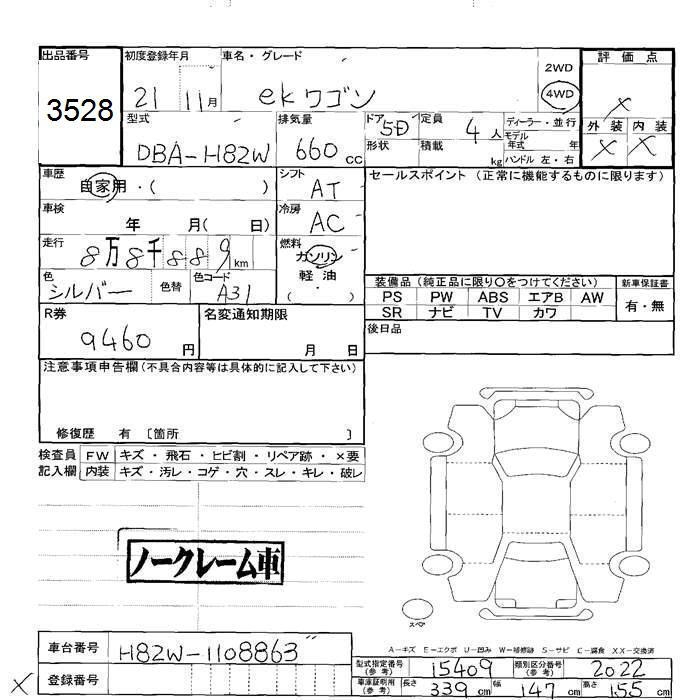 出品番号 初度登録年月 車名・グレード 2WD 評価点
3528 21 11月 ekワゴン 4WD ×
型式 排気量 ドア 5D 定員 4人 ディーラー・並行 外装 内装
DBA-H82W 660cc 形状 積載 kg モデル年式 年 × ×
ハンドル 左・右
車歴 シフト セールスポイント(正常に機能するものに限ります)
自家用・( ) AT
車検 冷房
年 月( 日) AC
走行 燃料
8万8千889km ガソリン
軽油
( )
色 色替 色コード 装備品(純正品に限り〇をつけてください) 新車保証書
シルバー A31 PS PW ABS エアB AW 有・無
SR ナビ TV カワ
R券 名変通知期限 後日品
9460円 月 日
注意事項申告欄(不具合内容等は具体的に記入して下さい)
修復歴 有 〔箇所 〕
検査員 FW キズ・飛石・ヒビ割・リペア跡・×要
記入欄 内装 キズ・汚レ・コゲ・穴・スレ・キレ・破レ
ノークレーム車
スペア
A-キズ E-エクボ U-凹み W-補修跡 S-サビ C-腐食 XX-交換済
車台番号 H82W-1108863
型式指定番号(参考) 15409 類別区分番号(参考) 2022
× 登録番号
車庫証明用(参考) 長さ 339cm 幅 147cm 高さ 155cm